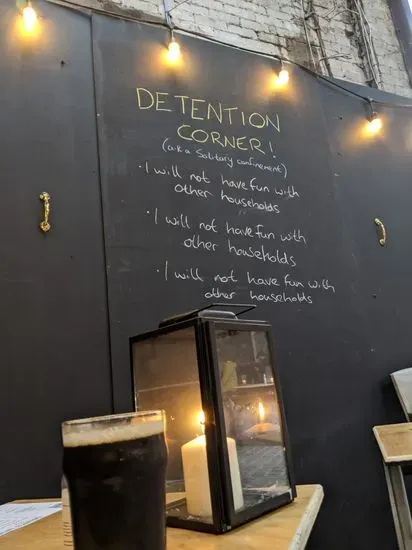 DETENTION
CORNER!
(a.k.a Solitary confinement)
· I will not have fun with
other households
· I will not have fun with
other households
· I will not have fun with
other households